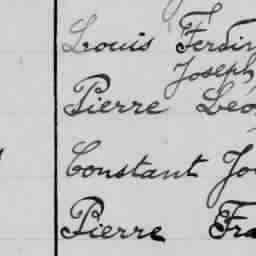 Louis Ferdin
Joseph
Pierre Léo
Constant Jo
Pierre Fra